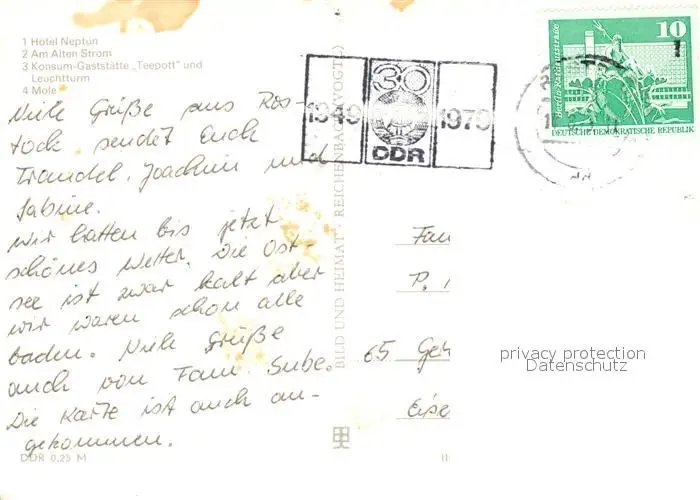 1 Hotel Neptun
2 Am Alten Strom
3 Konsum-Gaststätte „Teepott" und
Leuchtturm
4 Mole
Viele Grüße aus Ros-
tock sendet Euch
Traudel, Joachim und
Sabine.
Wir hatten bis jetzt
schönes Wetter. Die Ost-
see ist zwar kalt aber
wir waren schon alle
baden. Viele Grüße
auch von Fam. Sube.
Die Karte ist auch an-
gekommen.
DDR 0,25 M
BILD UND HEIMAT · REICHENBACH (VOGTL)
1949 30 1979
DDR
10
Berlin-Rathausstraße
DEUTSCHE DEMOKRATISCHE REPUBLIK
Fam
P.
65 Ge
Eise
privacy protection
Datenschutz